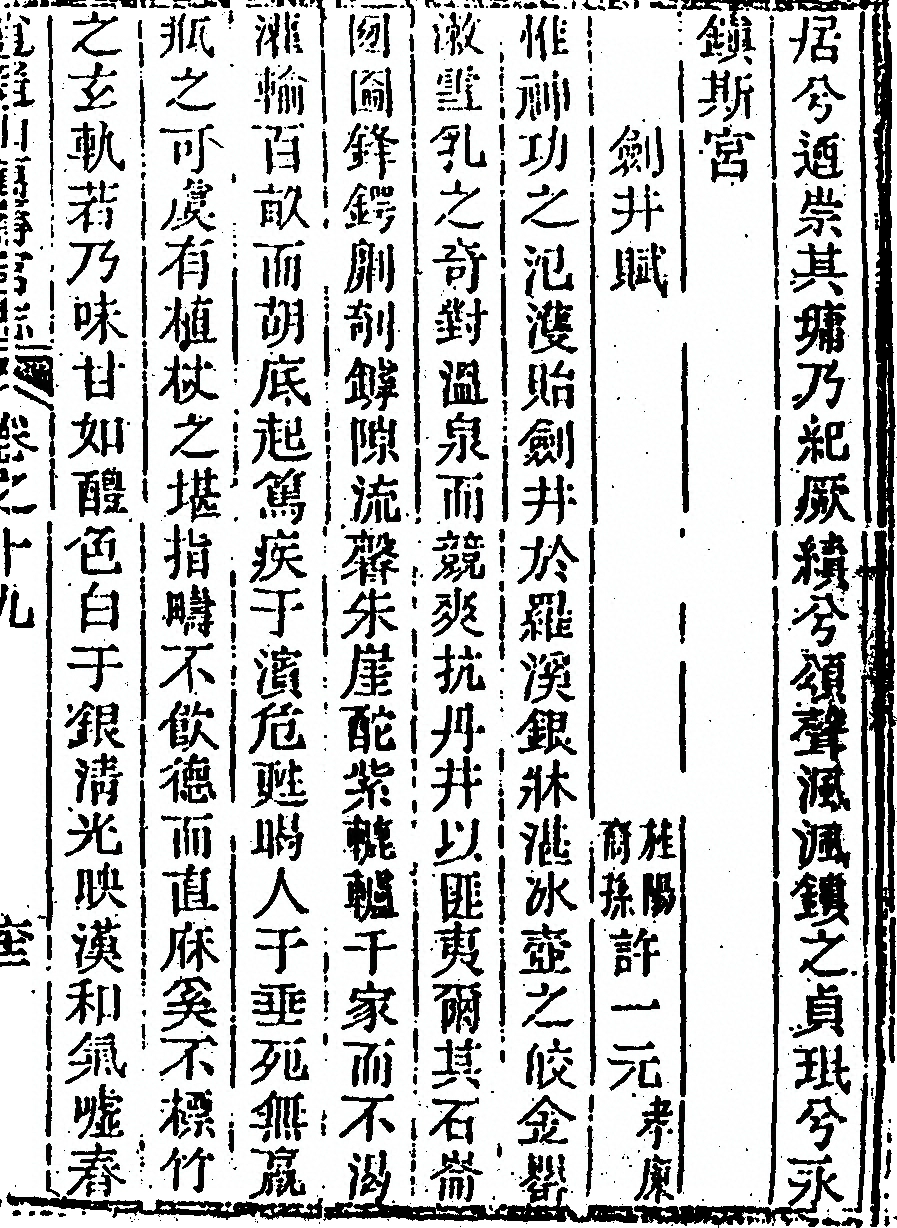 居兮迺崇其墉乃紀厥績兮頌聲渢渢鎖之貞珉兮永
鎮斯宮
劍井賦
桂陽裔孫許一元孝廉
惟神功之氾濩貽劍井於羅溪銀牀湛冰壺之皎金甖
漱雪乳之奇對溫泉而競爽抗丹井以匪夷爾其石崙
囷圇鋒鍔劘剞鏬隙流馨朱崖酡紫轆轤千家而不渴
灌輸百畝而胡底起篤疾于濱危甦暍人于垂死無羸
瓶之可虞有植杖之堪指疇不飲德而直庥奚不標竹
之玄軌若乃味甘如醴色白于銀清光映漢和氣噓春
卷之十九